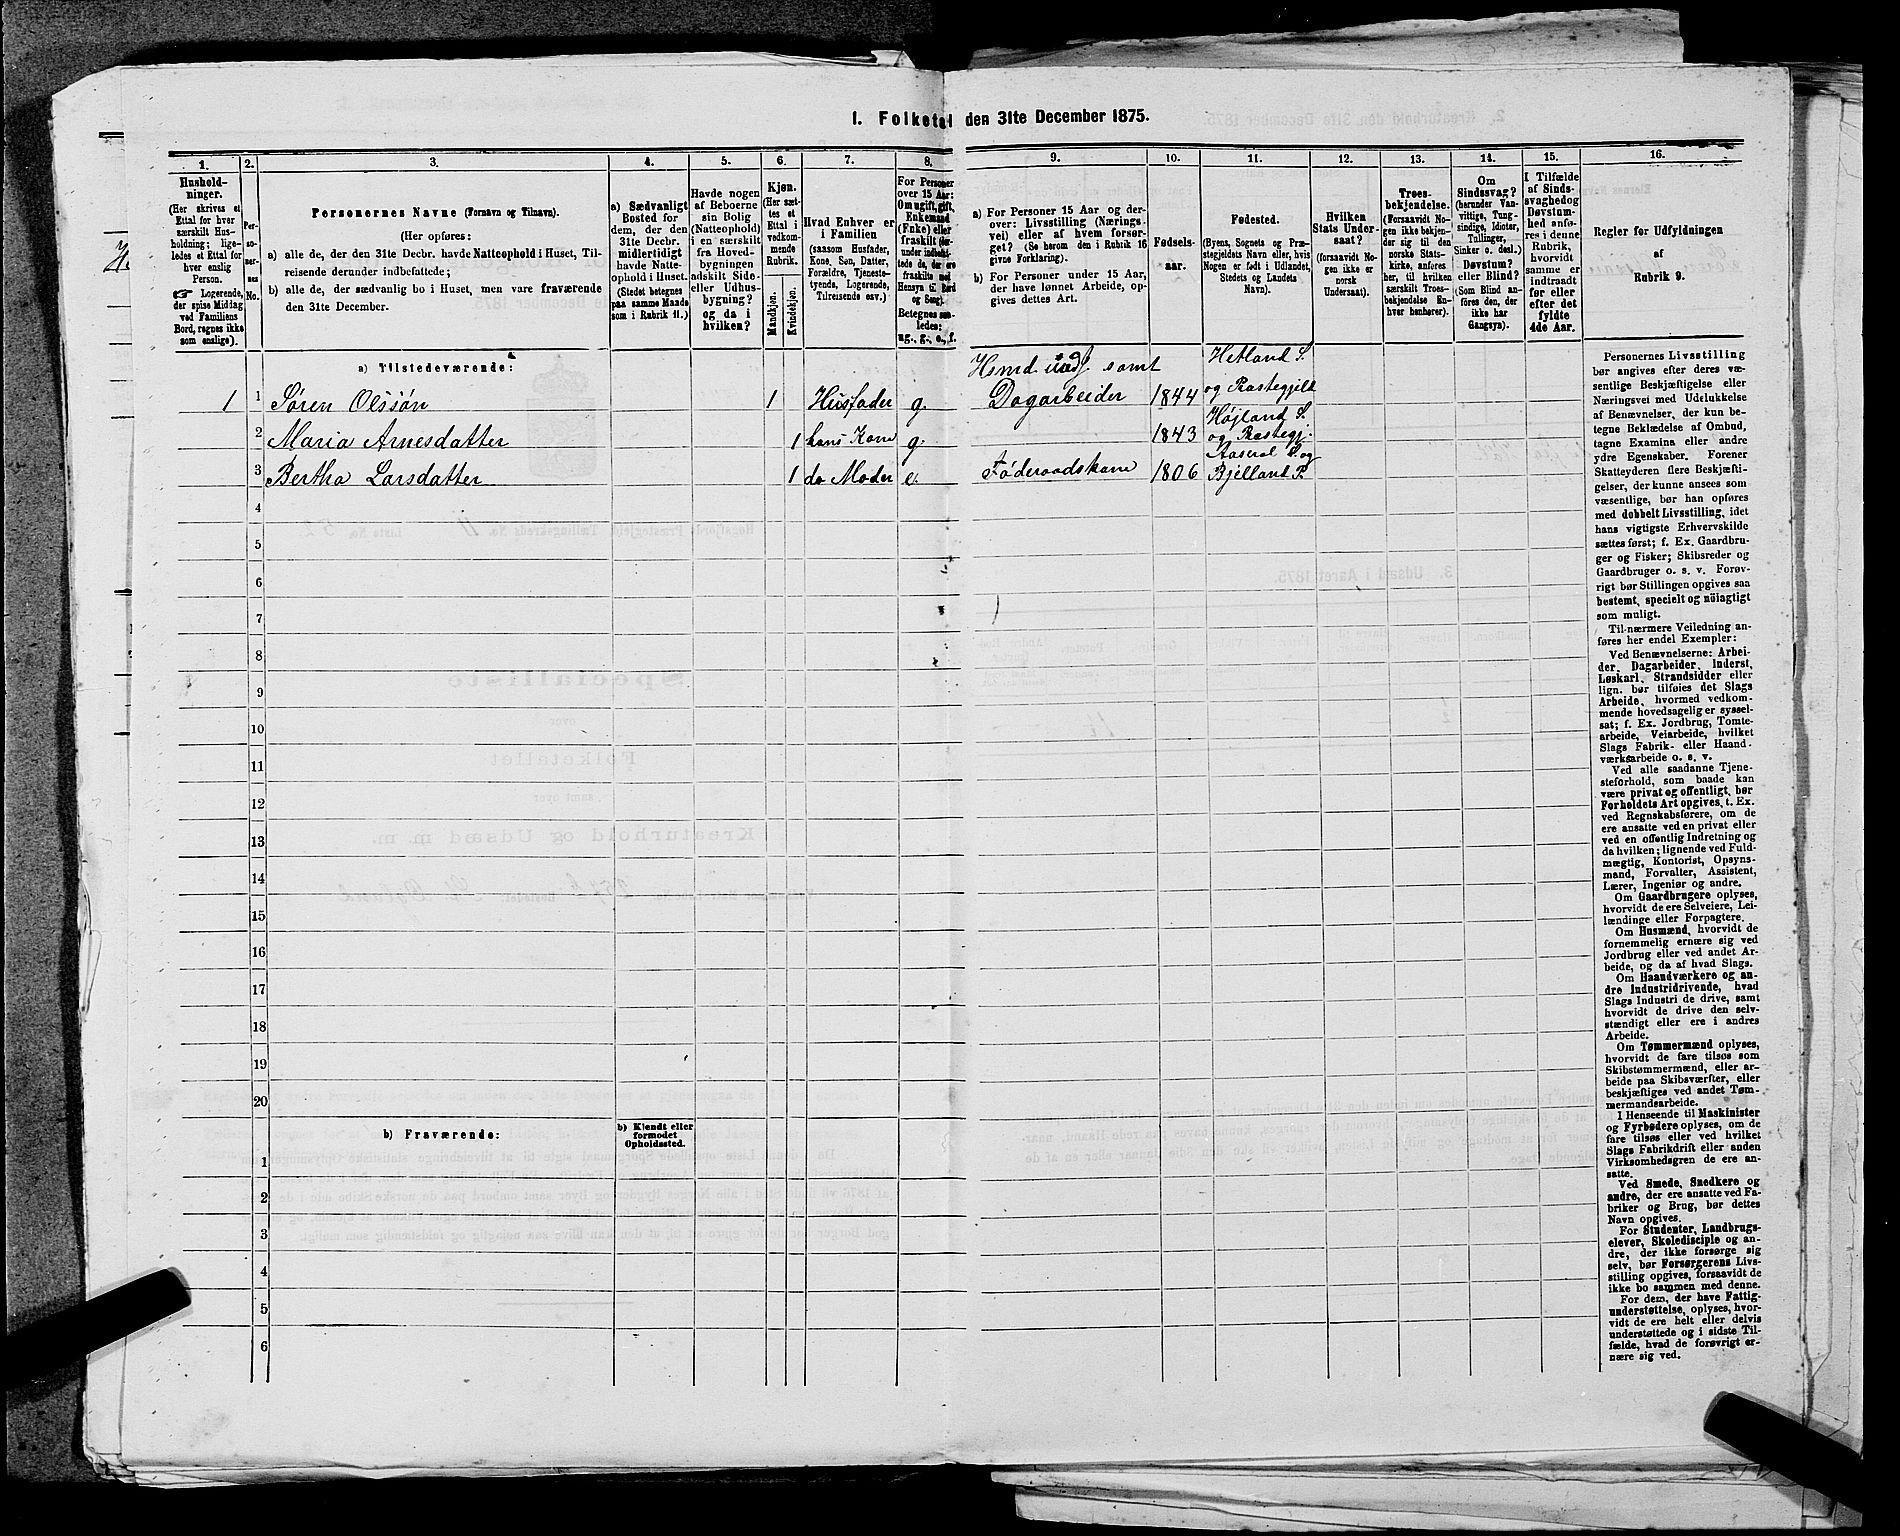 1. Folketal den 31te December 1875.
1.
2.
3.
4.
5.
6.
7.
8.
9.
10.
11.
12.
13.
14.
15.
16.
Hushold-
ninger.
(Her skrives et
Ettal for hver
særskilt Hus-
holdning; lige-
ledes et Ettal for
hver enslig
Person.
☞ Logerende,
der spise Middag
ved Familiens
Bord, regnes ikke
som enslige).
Per-
so-
ner-
nes
No.
Personernes Navne (Fornavn og Tilnavn).
(Her opføres:
a) alle de, der den 31te Decbr. havde Natteophold i Huset, Til-
reisende derunder indbefattede;
b) alle de, der sædvanlig bo i Huset, men vare fraværende
den 31te December.
a) Sædvanligt
Bosted for
dem, der den
31te Decbr.
midlertidigt
havde Natte-
ophold i Huset.
(Stedet betegnes
paa samme Maade
som i Rubrik 11.)
Havde nogen
af Beboerne
sin Bolig
(Natteophold)
i en særskilt
fra Hoved-
bygningen
adskilt Side-
eller Udhus-
bygning?
og da i
hvilken?
Kjøn.
(Her sæt-
tes et
Ettal i
vedkom-
mende
Rubrik.
Mandkjøn.
Kvindekjøn.
Hvad Enhver er
i Familien
(saasom Husfader,
Kone, Søn, Datter,
Forældre, Tjeneste-
tyende, Logerende,
Tilreisende osv.)
For Personer
over 15 Aar:
Om ugift, gift,
Enkemand
(Enke) eller
fraskilt
Hensyn til Bord
og Seng).
Betegnes saa-
ledes:
ug., g., e., f.
a) For Personer 15 Aar og der-
over: Livsstilling (Nærings-
vei) eller af hvem forsør-
get? (Se herom den i Rubrik 16
givne Forklaring).
b) For Personer under 15 Aar,
der have lønnet Arbeide, op-
gives dettes Art.
Fødsels-
aar.
Fødested.
(Byens, Sognets og Præ-
stegjeldets Navn eller, hvis
Nogen er født i Udlandet,
Stedets og Landets
Navn).
Hvilken
Stats Under-
saat?
(forsaavidt No-
gen ikke er
norsk
Undersaat).
Troes-
bekjendelse.
(Forsaavidt No-
gen ikke bekjen-
der sig til den
norske Stats-
kirke, anføres
her, til hvilken
særskilt Troes-
bekjendelse En-
hver henhører).
Om
Sindssvag?
(herunder Van-
vittige, Tung-
sindige, Idioter,
Tullinger,
Sinker o. desl.)
Døvstum?
eller Blind?
(Som Blind an-
føres den, der
ikke har
Gangsyn).
I Tilfælde
af Sinds-
svaghed og
Døvstum-
hed anfø-
res i denne
Rubrik,
hvorvidt
samme er
indtraadt
før eller
efter det
fyldte
4de Aar.
Regler for Udfyldningen
af
Rubrik 9.
a) Tilstedeværende:
1 1 Søren Olssøn 1 Husfader g. Hsmd m. samt Dagarbeider 1844 Hetland S. og Præstegjeld
2 Maria Arnesdatter 1 hans Kone g. 1843 Højland S. og Præstegj.
3 Bertha Larsdatter 1 do Moder e. Føderaadskone 1806 Aaseral S. og Bjelland P.
4
5
6
7
8
9
10
11
12
13
14
15
16
17
18
19
20
b) Fraværende:
b) Kjendt eller
formodet
Opholdssted.
1
2
3
4
5
6
Personernes Livsstilling
bør angives efter deres væ-
sentlige Beskjæftigelse eller
Næringsvei med Udelukkelse
af Benævnelser, der kun be-
tegne Beklædelse af Ombud,
tagne Examina eller andre
ydre Egenskaber. Forener
Skatteyderen flere Beskjæfti-
gelser, der kunne ansees som
væsentlige, bør han opføres
med dobbelt Livsstilling, idet
hans vigtigste Erhvervskilde
sættes først; f. Ex. Gaardbru-
ger og Fisker; Skibsreder og
Gaardbruger o. s. v. Forøv-
rigt bør Stillingen opgives saa
bestemt, specielt og nöiagtigt
som muligt.
Til nærmere Veiledning an-
føres her endel Exempler:
Ved Benævnelserne: Arbei-
der, Dagarbeider, Inderst,
Løskarl, Strandsidder eller
lign. bør tilføies det Slags
Arbeide, hvormed vedkom-
mende hovedsagelig er syssel-
sat; f. Ex. Jordbrug, Tomte-
arbeide, Veiarbeide, hvilket
Slags Fabrik- eller Haand-
værksarbeide o. s. v.
Ved alle saadanne Tjene-
steforhold, som baade kan
være privat og offentligt, bør
Forholdets Art opgives, t. Ex.
ved Regnskabsførere, om de
ere ansatte ved en privat eller
ved en offentlig Indretning og
da hvilken; lignende ved Fuld-
mægtig, Kontorist, Opsyns-
mand, Forvalter, Assistent,
Lærer, Ingeniør og andre.
Om Gaardbrugere oplyses,
hvorvidt de ere Selveiere, Lei-
lændinge eller Forpagtere.
Om Husmænd, hvorvidt de
fornemmelig ernære sig ved
Jordbrug eller ved andet Ar-
beide, og da af hvad Slags.
Om Haandværkere og an-
dre Industridrivende, hvad
Slags Industri de drive, samt
hvorvidt de drive den selv-
stændigt eller ere i andres
Arbeide.
Om Tømmermænd oplyses,
hvorvidt de fare tilsøs som
Skibstømmermænd, eller ar-
beide paa Skibsværfter, eller
beskjæftiges ved andet Tøm-
mermandsarbeide.
I Henseende til Maskinister
og Fyrbødere oplyses, om de
fare tilsøs eller ved hvilket
Slags Fabrikdrift eller anden
Virksomhedsgren de ere an-
satte.
Ved Smede, Snedkere og
andre, der ere ansatte ved Fa-
briker og Brug, bør dettes
Navn opgives.
For Studenter, Landbrugs-
elever, Skoledisciple og an-
dre, der ikke forsørge sig
selv, bør Forsørgerens Livs-
stilling opgives, forsaavidt de
ikke bo sammen med denne.
For dem, der have Fattig-
understøttelse, oplyses, hvor-
vidt de ere helt eller delvis
understøttede og i sidste Til-
fælde, hvad de forøvrigt er-
nære sig ved.